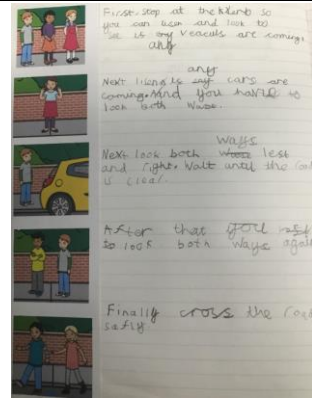 First. Stop at the kerb so
you can lisen and look to
see is any veaculs are coming.
any
any
Next lisen is any cars are
coming. And you have to
look both
ways
Next look both left
and right. Wait until the road
is clear.
After that you
to look both ways again
Finally cross the road
safly